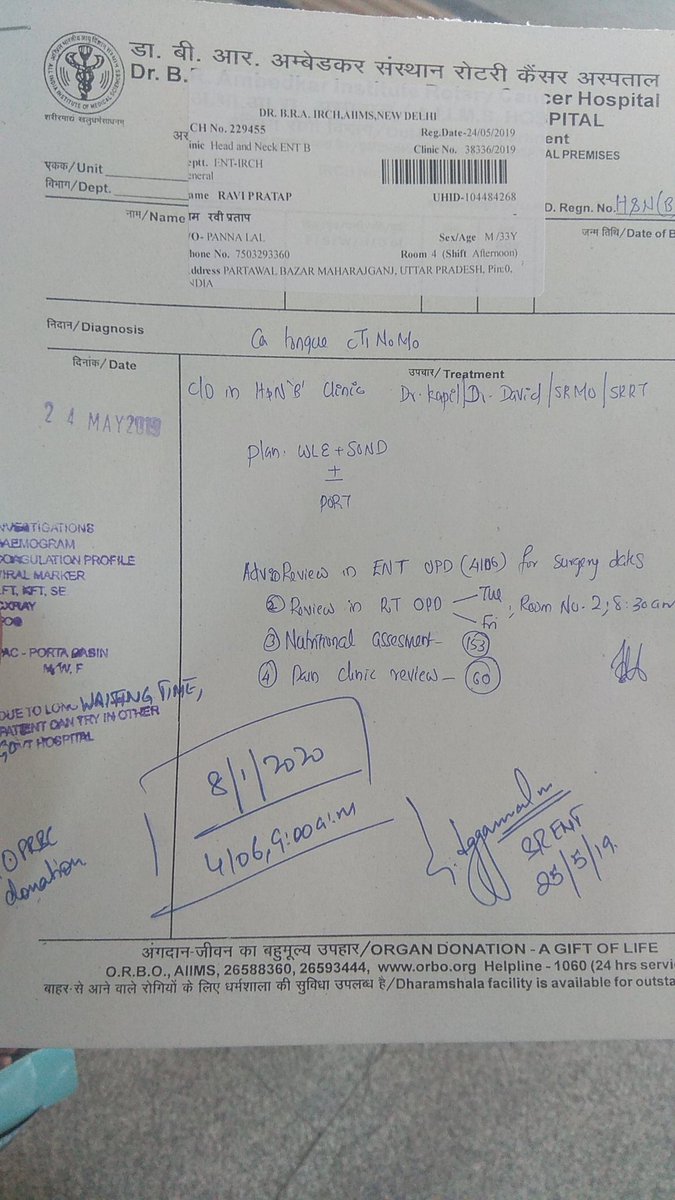 डा. बी. आर. अम्बेडकर संस्थान रोटरी कैंसर अस्पताल
Dr. B.
cer Hospital
SPITAL
ent
AL PREMISES
शरीरमाद्यं खलुधर्मसाधनम्
DR. B.R.A. IRCH,AIIMS,NEW DELHI
CH No. 229455 Reg.Date-24/05/2019
inic Head and Neck ENT B Clinic No. 38336/2019
eptt. ENT-IRCH
eneral
ame RAVI PRATAP UHID-104484268
ाम रवी प्रताप
/O- PANNA LAL Sex/Age M /33Y
hone No. 7503293360 Room 4 (Shift Afternoon)
ddress PARTAWAL BAZAR MAHARAJGANJ, UTTAR PRADESH, Pin:0,
NDIA
एकक/Unit
विभाग/Dept.
D. Regn. No. H&N(B
नाम/Name
जन्म तिथि/Date of B
निदान/Diagnosis
Ca tongue cT1N0M0
दिनांक/Date
उपचार/Treatment
24 MAY 2019
C/D in H&N 'B' Clinic Dr. Kapil/Dr. David/SRMO/SRRT
Plan. WLE + SOND
±
PORT
Review in ENT OPD (4106) for surgery dates
② Review in RT OPD Tue, Fri, Room No. 2; 8:30am
③ Nutritional assesment - 153
④ Pain clinic review - 60
NVESTIGATIONS
AEMOGRAM
OAGULATION PROFILE
VIRAL MARKER
FT, KFT, SE
CXRAY
PAC - PORTA CABIN
M, W, F
DUE TO LONG WAITING TIME,
PATIENT CAN TRY IN OTHER
GOVT HOSPITAL
8/1/2020
4106, 9:00a.m
PRBC
donation
SR ENT
25/5/19.
अंगदान-जीवन का बहुमूल्य उपहार/ORGAN DONATION - A GIFT OF LIFE
O.R.B.O., AIIMS, 26588360, 26593444, www.orbo.org Helpline - 1060 (24 hrs servi
बाहर से आने वाले रोगियों के लिए धर्मशाला की सुविधा उपलब्ध है/Dharamshala facility is available for outsta